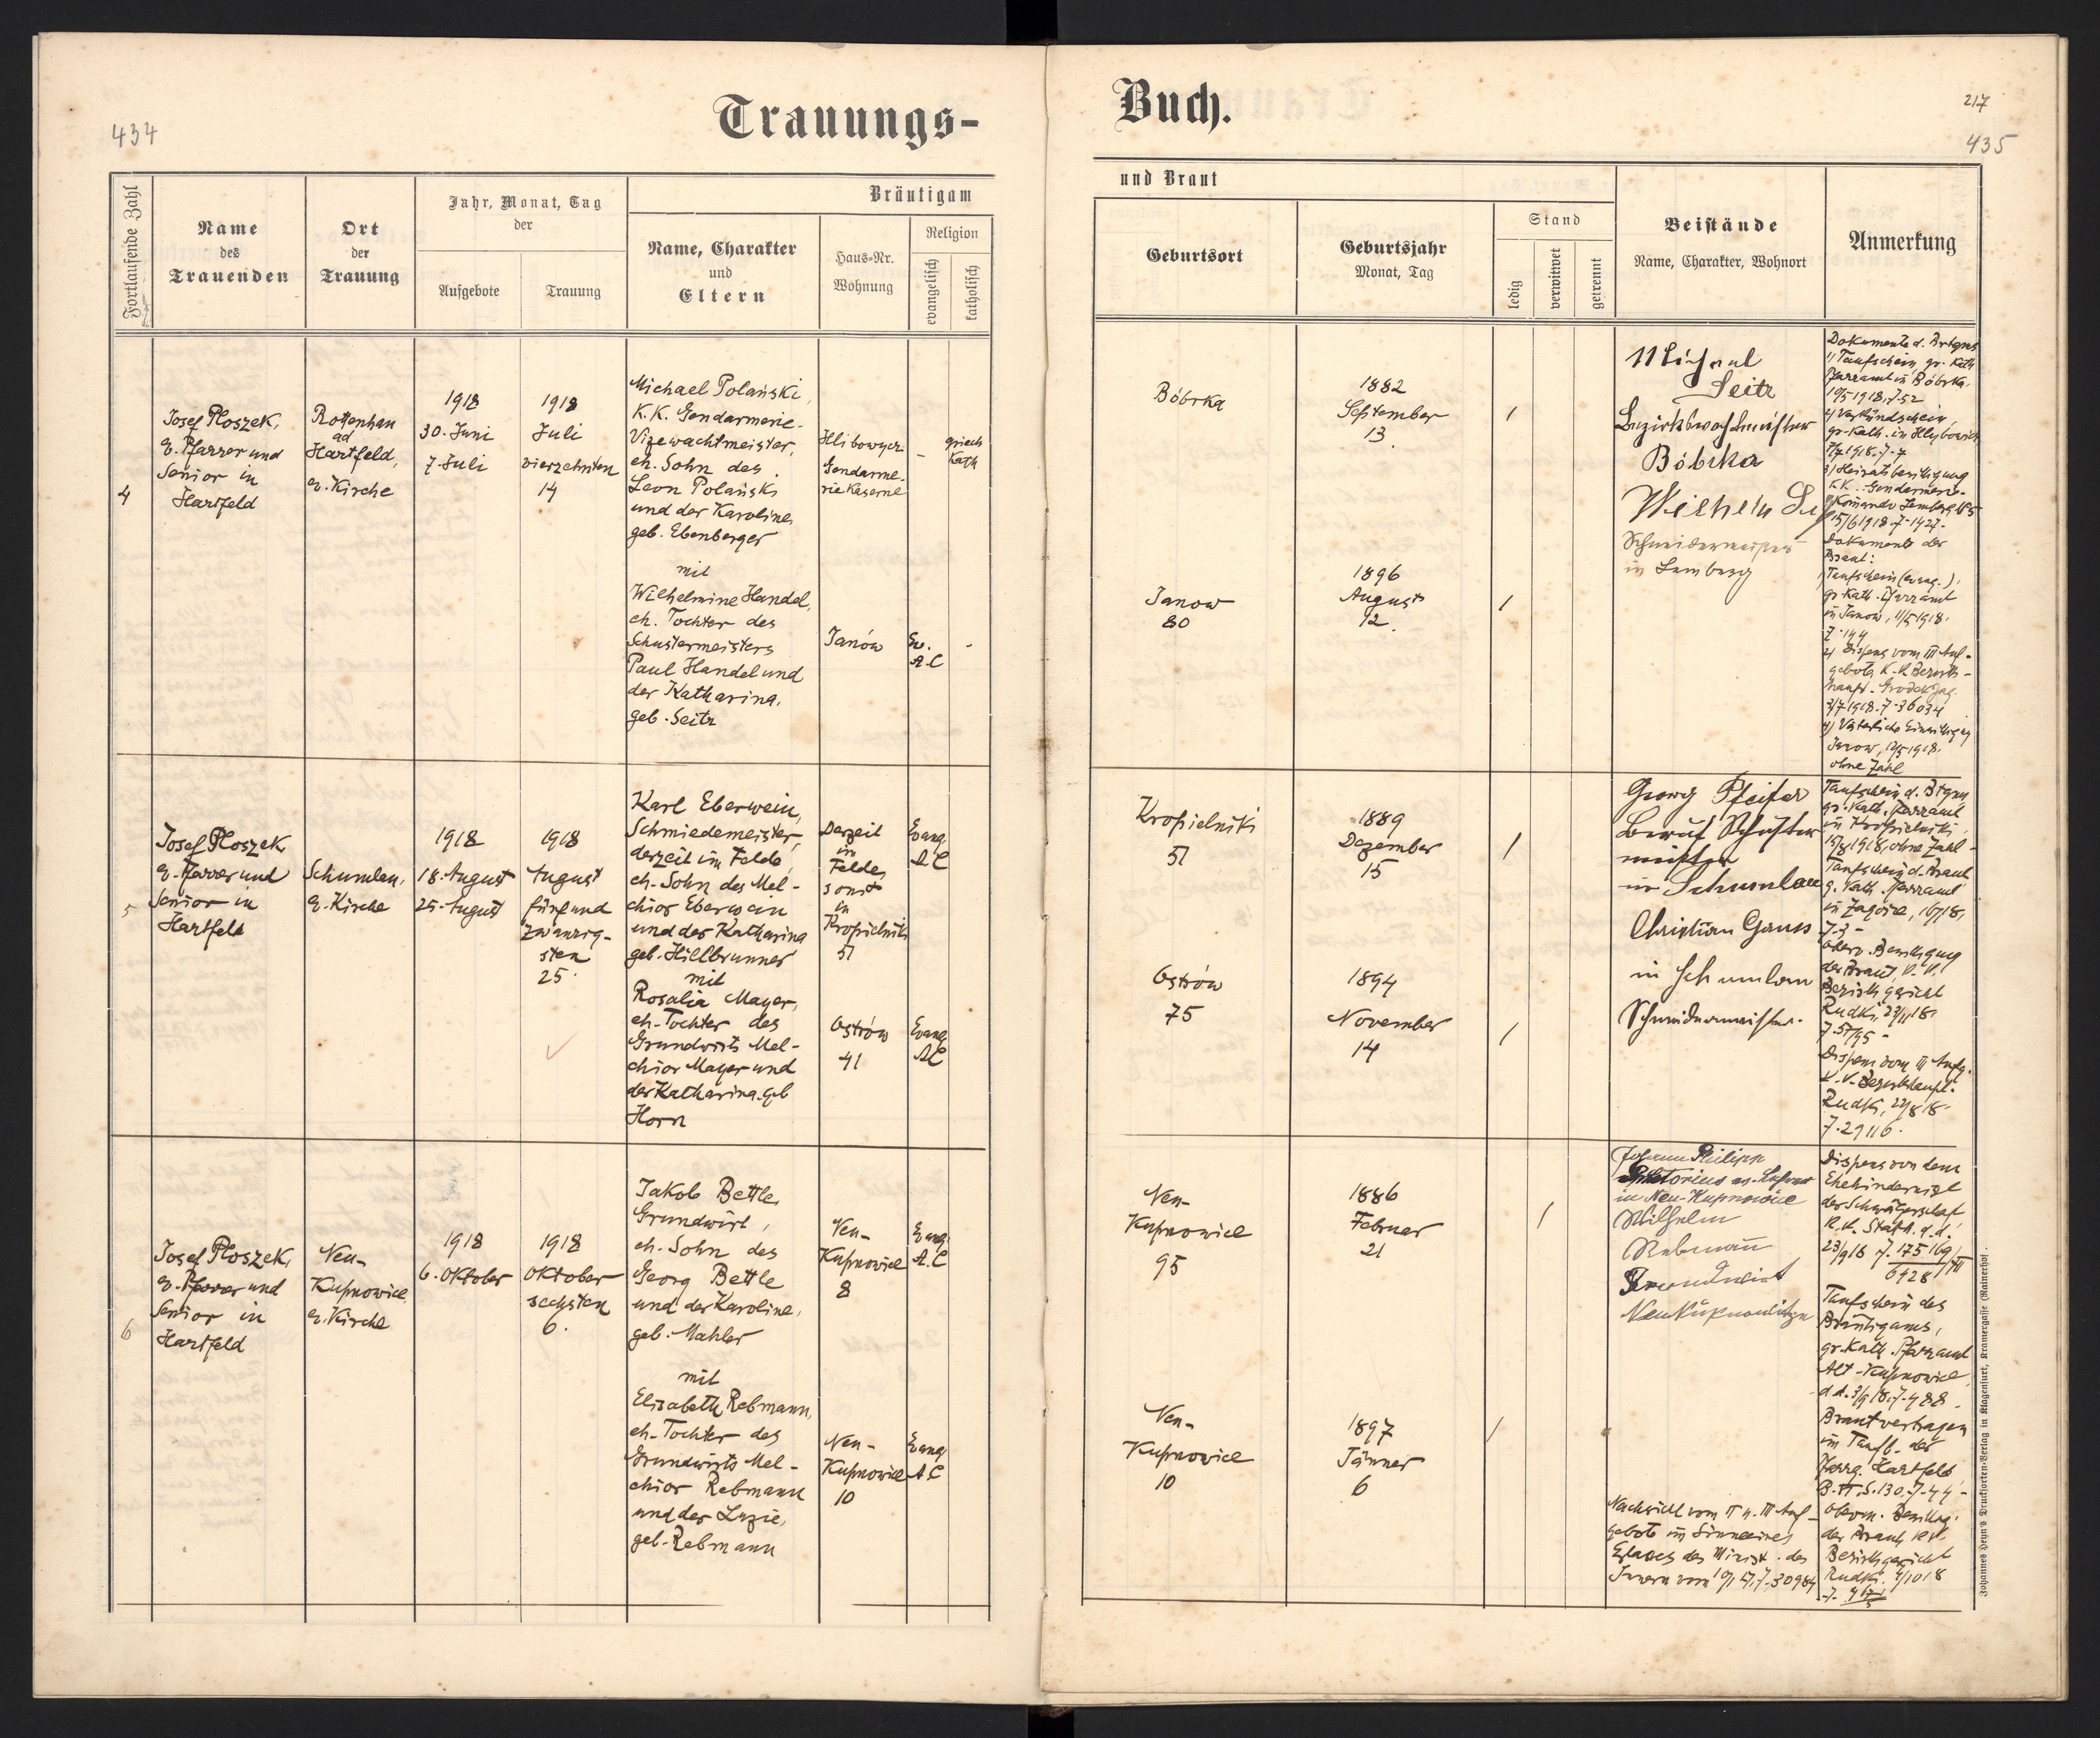 434
Trauungs-
Fortlaufende Zahl
Name
des
Trauenden
Ort
der
Trauung
Jahr, Monat, Tag
der
Aufgebote
Trauung
Bräutigam
Name, Charakter
und
Eltern
Haus-Nr.
Wohnung
Religion
evangelisch
katholisch
4
Josef Ploszek,
ev. Pfarrer und
Senior in
Hartfeld
Rottenhan
ad
Hartfeld,
ev. Kirche
1918
30. Juni
7. Juli
1918
Juli
vierzehnten
14
Michael Polański,
K. K. Gendarmerie-
Vizewachtmeister,
eh. Sohn des
Leon Polański
und der Karoline,
geb. Ebenberger
mit
Wilhelmine Handel,
eh. Tochter des
Schustermeisters
Paul Handel und
der Katharina,
geb. Seitz
Hlibowycz
Gendarme-
rie Kaserne
-
griech
Kath
Janów
Ev.
A.C
-
5
Josef Ploszek
ev. Pfarrer und
Senior in
Hartfeld
Schumlau,
ev. Kirche
1918
18. August
25. August
1918
August
fünf und
zwanzig-
sten
25.
Karl Eberwein,
Schmiedemeister,
derzeit im Felde,
eh. Sohn des Mel-
chior Eberwein
und der Katharina
geb. Hillbrunner
mit
Rosalia Mayer,
eh. Tochter des
Grundwirts Mel-
chior Mayer und
der Katharina, geb
Horn
Derzeit
im
Felde,
sonst
in
Kropielniki
51
Evang.
A.C
Ostrów
41
Evang
A.C
6
Josef Ploszek,
ev. Pfarrer und
Senior in
Hartfeld
Neu-
Kupnowice
ev. Kirche
1918
6. Oktober
1918
Oktober
sechsten
6.
Jakob Bettle,
Grundwirt,
eh. Sohn des
Georg Bettle
und der Karoline,
geb. Mahler
mit
Elisabeth Rebmann,
eh. Tochter des
Grundwirts Mel-
chior Rebmann
und der Luzie,
geb. Rebmann
Neu-
Kupnowice
8
Evang
A.C
Neu-
Kupnowice
10
Evang
A.C
Buch.
217
435
und Braut
Geburtsort
Geburtsjahr
Monat, Tag
Stand
ledig
verwitwet
getrennt
Beistände
Name, Charakter, Wohnort
Anmerkung
Bóbrka
1882
September
13.
/
Janow
80
1896
August
12.
/
Michael
Seitz
Bezirkswachtmeister
Bóbrka
Wilhelm
Schneidermeister
in Lemberg
Dokumente d. Brtgms
1) Taufschein, gr. Kath
Pfarramt in Bóbrka,
10/5 1918, 7-52
2) Verkündschein,
gr. Kath. in Hlybowicz
7/7 1918.-7-7
3) Heiratsbewilligung
K.K. Gendarmerie-
Komando Lemberg № 5
15/6 1918.7-1427-
Dokumente der
Braut:
1) Taufschein (evang.),
gr. Kath. Pfarramt
in Janow, 11/5 1918.
7-144
2) Dispens vom III Auf-
gebote, K.K Bezirks-
haupt. Gródek Jag.
3/7 1918.7-36034
4) Väterliche Einwilligung
Janow, 12/5 1918.
ohne Zahl
Kropielniki
51
1889
Dezember
15
/
Ostrów
75
1894
November
14
/
Georg Pfeifer
Beruf Schuster
meister
in Schumlau
Christian Gans
in Schumlau
Schneidermeister.
Taufschein d. Btgm
gr. Kath. Pfarramt
in Kropielniki
ohne Zahl -
Taufschein d. Braut
g. Kath. Pfarramt
in Zagórze,
7-3-
Oberv. Bewilligung
der Braut, K.K.
Bezirksgericht
Rudki,
Dispens vom III Aufg.
K.K. Bezirkshaupt.
Rudki,
7.29116.
Neu-
Kupnowice
95
1886
Februar
21
/
Neu-
Kupnowice
10
1897
Jänner
6
/
Johann Philipp
in Neu-Kupnowice
Wilhelm
Rebmann
Grundwirt
Neu Kupnowitze
Nachsicht vom II u. III Auf-
gebote im Sinne eines
Erlasses des Minist. des
Innern vom
Dispens von dem
Ehehindernisse
der Schwägerschaft
K.K. Statth. d.d.
Taufschein des
Bräutigams,
gr. Kath. Pfarramt
Alt-Kupnowice,
d.d. 3/9 18.7-488.
Braut vertragen
im Taufb. der
Pfarrg. Hartfeld
B. VI. S. 130. 7-44-
Oberv. Bewillig.
der Braut KK
Bezirksgericht
Rudki,
Johannes Heyn's Drucksorten-Verlag in Klagenfurt, Kramergasse (Rainerhof).